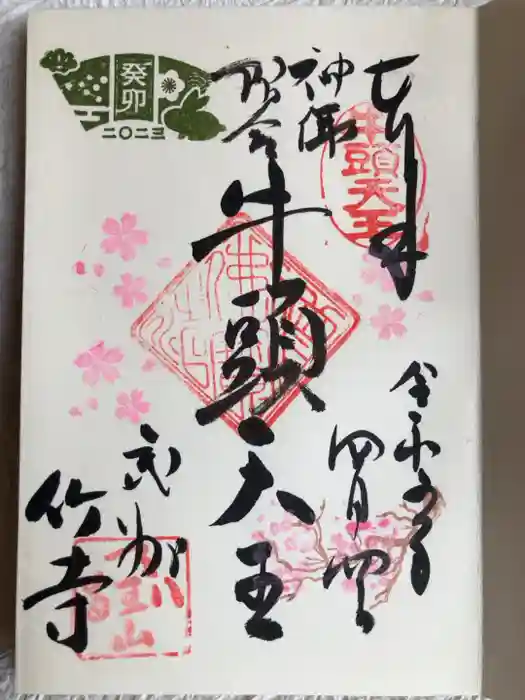 奉拝
令和五年
四月四日
神佛
習合
牛頭天王
武州
竹寺
牛頭天王
癸卯
二〇二三
医王山